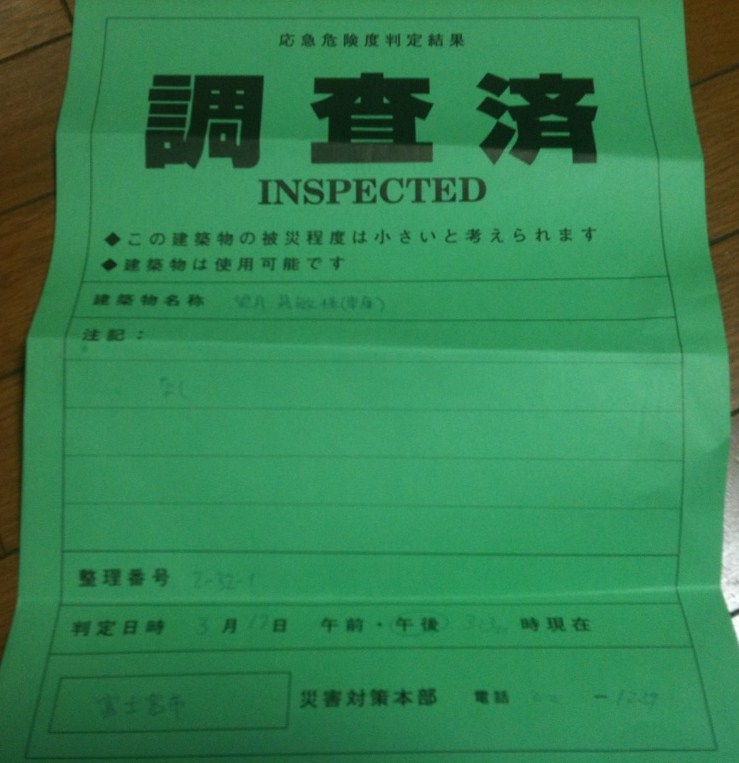 応急危険度判定結果
調査済
INSPECTED
◆この建築物の被災程度は小さいと考えられます
◆建築物は使用可能です
建築物名称
注記：
なし
整理番号 2-32-1
判定日時 3月17日 午前・午後 時現在
富士宮市 災害対策本部 電話